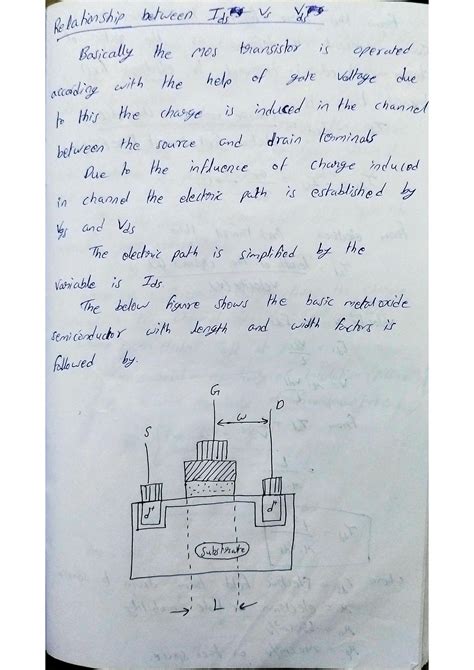 Relationship between Ids Vs Vds
Basically the mos transistor is operated
according with the help of gate voltage due
to this the charge is induced in the channel
between the source and drain terminals
Due to the influence of charge induced
in channel the electric path is established by
Vgs and Vds
The electric path is simplified by the
variable is Ids
The below figure shows the basic metal oxide
semiconductor with length and width factors is
followed by.
G
W
D
S
d+
d+
Substrate
L